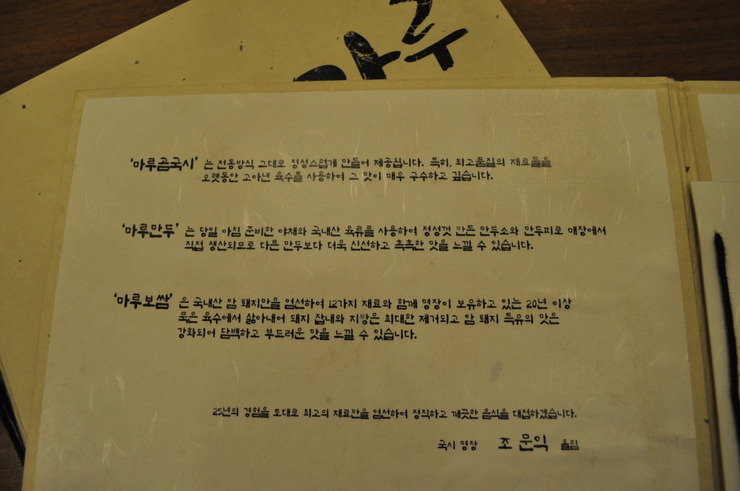 마루
'마루곰국시' 는 전통방식 그대로 정성스럽게 만들어 제공됩니다. 특히, 최고품질의 재료들을
오랫동안 고아낸 육수를 사용하여 그 맛이 매우 구수하고 깊습니다.
'마루만두' 는 당일 아침 준비한 야채와 국내산 육류를 사용하여 정성껏 만든 만두소와 만두피로 매장에서
직접 생산되므로 다른 만두보다 더욱 신선하고 촉촉한 맛을 느낄 수 있습니다.
'마루보쌈' 은 국내산 암 돼지만을 엄선하여 12가지 재료와 함께 명장이 보유하고 있는 20년 이상
묵은 육수에서 삶아내어 돼지 잡내와 지방은 최대한 제거되고 암 돼지 특유의 맛은
강화되어 담백하고 부드러운 맛을 느낄 수 있습니다.
25년의 경험을 모대로 최고의 재료만을 엄선하여 정직하고 깨끗한 음식을 대접하겠습니다.
국시 명장 조 문익 올림